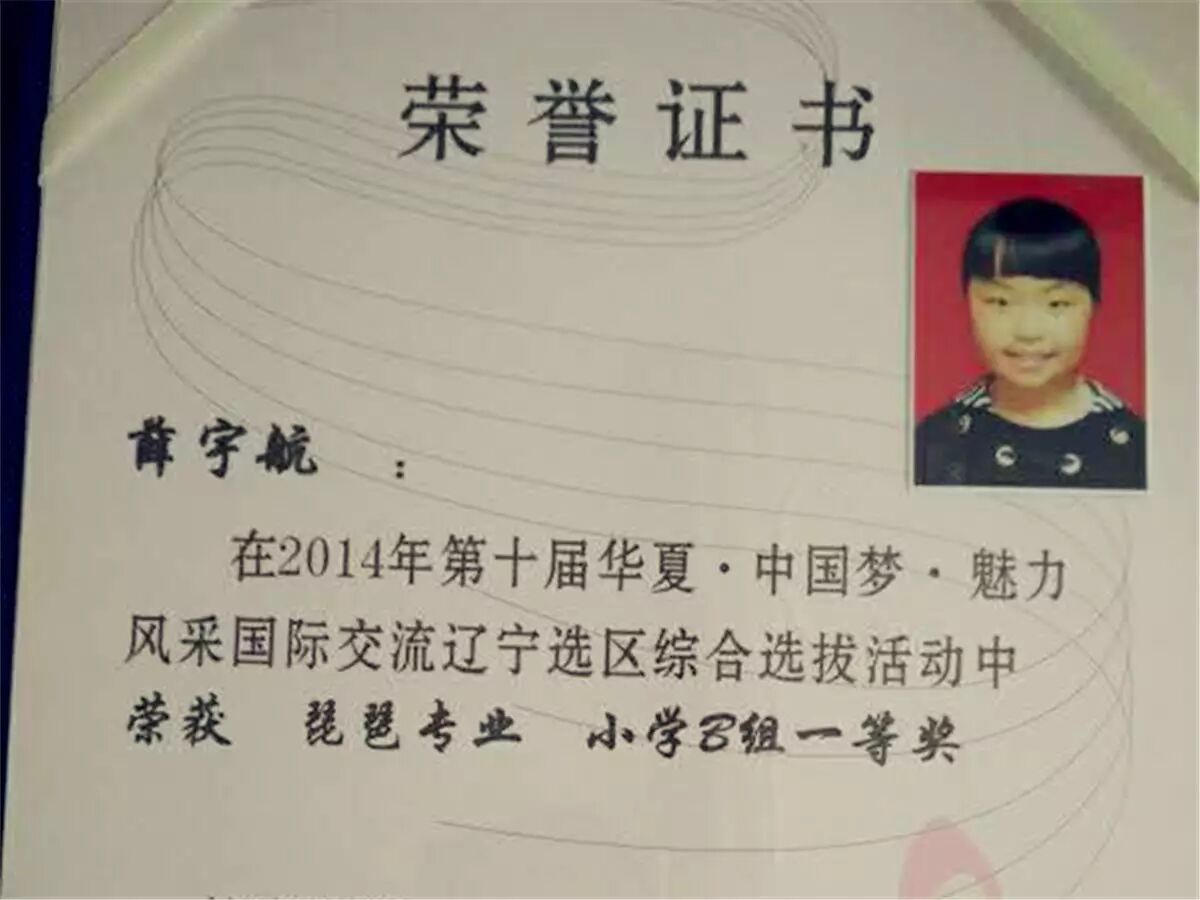 荣誉证书
薛宇航 ：
在2014年第十届华夏·中国梦·魅力
风采国际交流辽宁选区综合选拔活动中
荣获 琵琶专业 小学B组一等奖